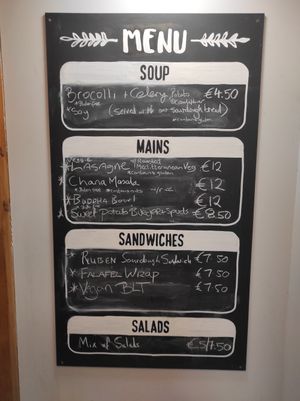 MENU
SOUP
Brocolli + Celery Potato €4.50
* Soy (served with our sourdough bread)
MAINS
Veggie
* LASAGNE w/ Roasted Mediterranean Veg €12
* Chana Masala €12
* BUDDHA Bowl €12
* Sweet Potato Burger + Spuds €8.50
SANDWICHES
* RUBEN Sourdough Sandwich €7.50
* FALAFEL WRAP €7.50
* Vegan BLT €7.50
SALADS
Mix of Salads €5/7.50